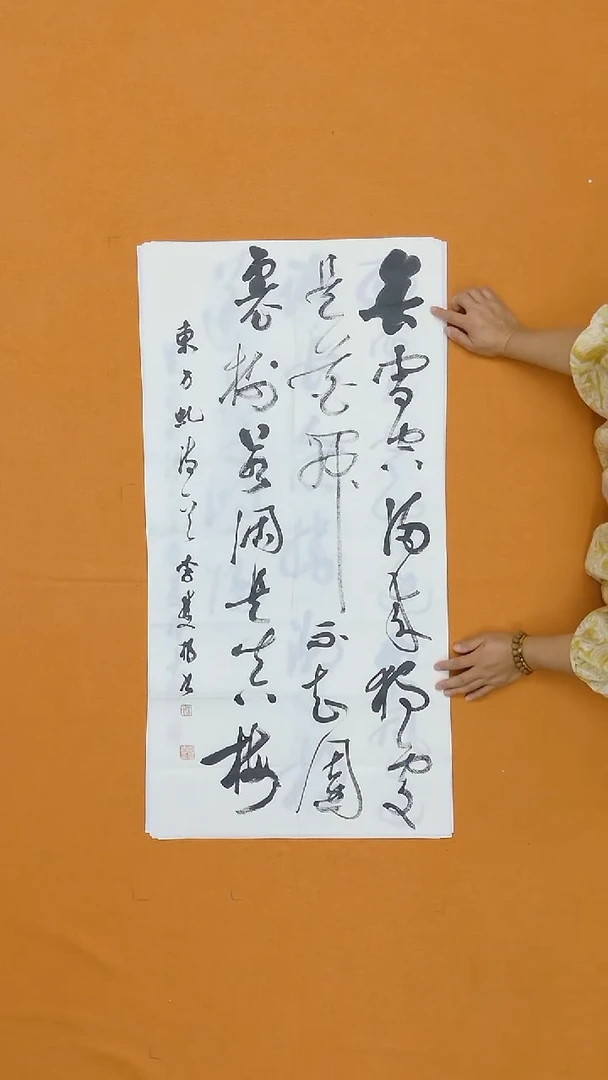 春雪空滿来觸處
是花開不知園
裏樹若個是真梅
東方虬詩一首